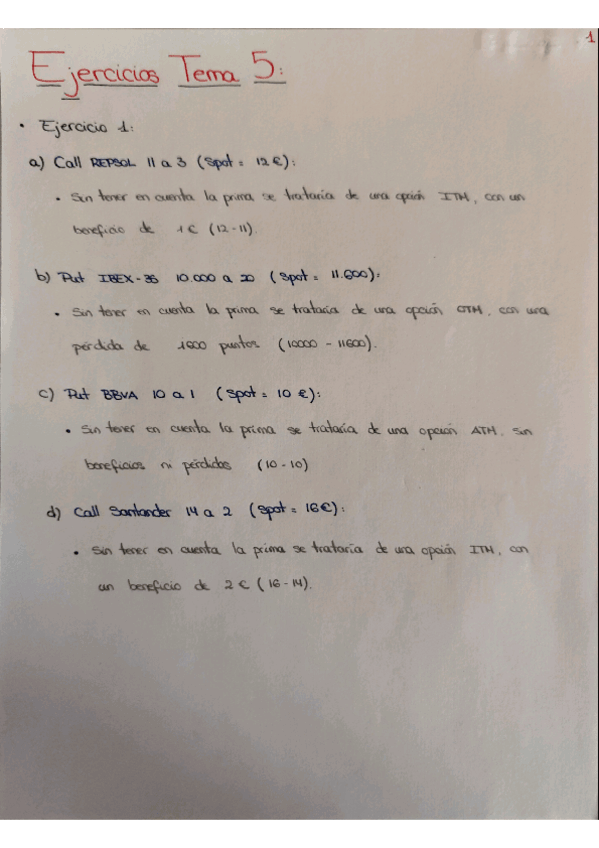 1
Ejercicios Tema 5:
• Ejercicio 1:
a) Call REPSOL 11 a 3 (Spot = 12 €):
• Sin tener en cuenta la prima se trataría de una opción ITM, con un
beneficio de 1 € (12-11).
b) Put IBEX-35 10.000 a 20 (Spot = 11.600):
• Sin tener en cuenta la prima se trataría de una opción OTM, con una
pérdida de 1600 puntos (10000 - 11600).
c) Put BBVA 10 a 1 (Spot = 10 €):
• Sin tener en cuenta la prima se trataría de una opción ATM, sin
beneficios ni pérdidas (10-10)
d) Call Santander 14 a 2 (Spot = 16€):
• Sin tener en cuenta la prima se trataría de una opción ITM, con
un beneficio de 2 € (16-14).